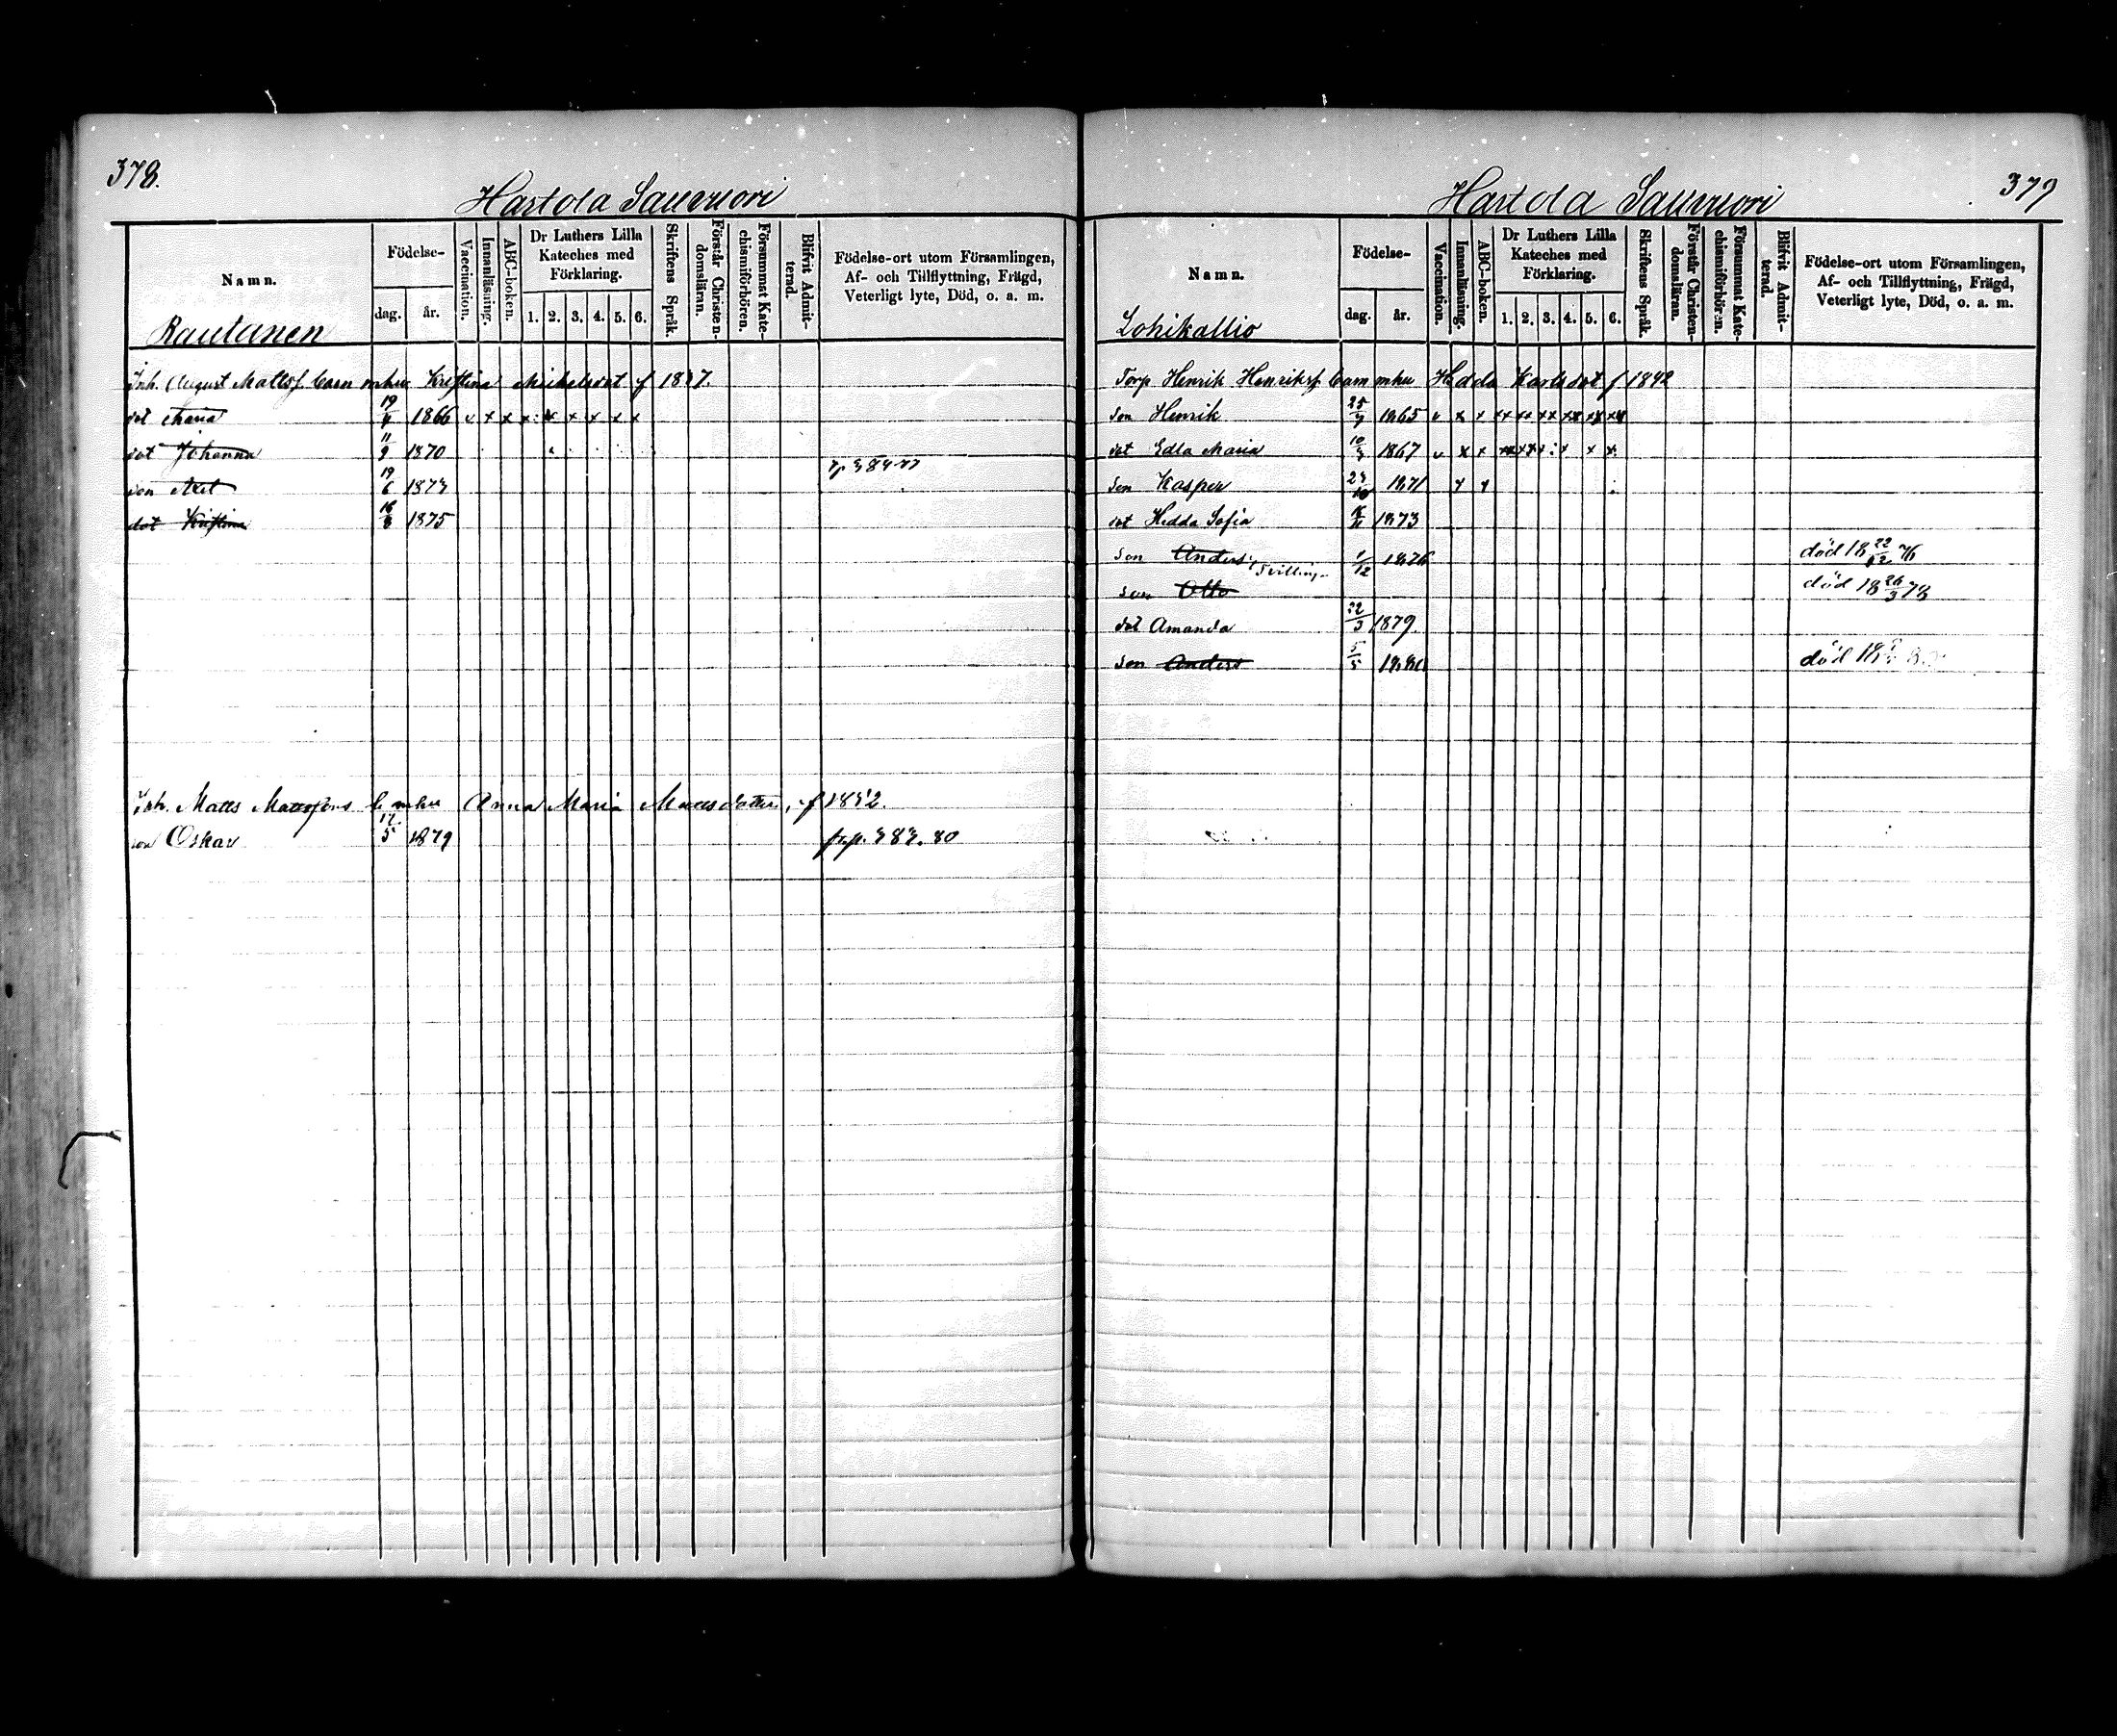 378.
Hastola Sauvuori
Namn.
Födelse-
dag.
år.
Vaccination.
Innanläsning.
ABC-boken.
Dr Luthers Lilla
Kateches med
Förklaring.
1. 2. 3. 4. 5. 6.
Skriftens Språk.
Förstår Christen-
domsläran.
Försummat Kate-
chismiförhören.
Blifvit Admit-
terad.
Födelse-ort utom Församlingen,
Af- och Tillflyttning, Frägd,
Veterligt lyte, Död, o. a. m.
Rautanen
Inh. August Matts s. barn mhu Kristina Mickelsdot f
dot Maria 19/4 1866 v x x x x x x x x
dot Johanna 11/9 1870
son Axel 19/6 1873
dot Kristina 16/3 1875
Inh. Matts Mattssons b. mhu Anna Maria Mattsdotter, f 1852.
son Oskar 17/5 1879 fr.p. 383. 80
379
Hastola Sauvuori
Namn.
Födelse-
dag.
år.
Vaccination.
Innanläsning.
ABC-boken.
Dr Luthers Lilla
Kateches med
Förklaring.
1. 2. 3. 4. 5. 6.
Skriftens Språk.
Förstår Christen-
domsläran.
Försummat Kate-
chismiförhören.
Blifvit Admit-
terad.
Födelse-ort utom Församlingen,
Af- och Tillflyttning, Frägd,
Veterligt lyte, Död, o. a. m.
Lohikallio
Torp Henrik Henrikss. barn mhu Hedda Karlsdot f 1842
son Henrik 1865
dot Edla Maria 1867
son Kasper 1871
dot Hedda Sofia 1873
son Anders, tvilling 1/12 1876 död 18 22/12 76
son Otto död 18 26/3 78
dot Amanda 22/3 1879.
son Anders 5/5 1880 död 18